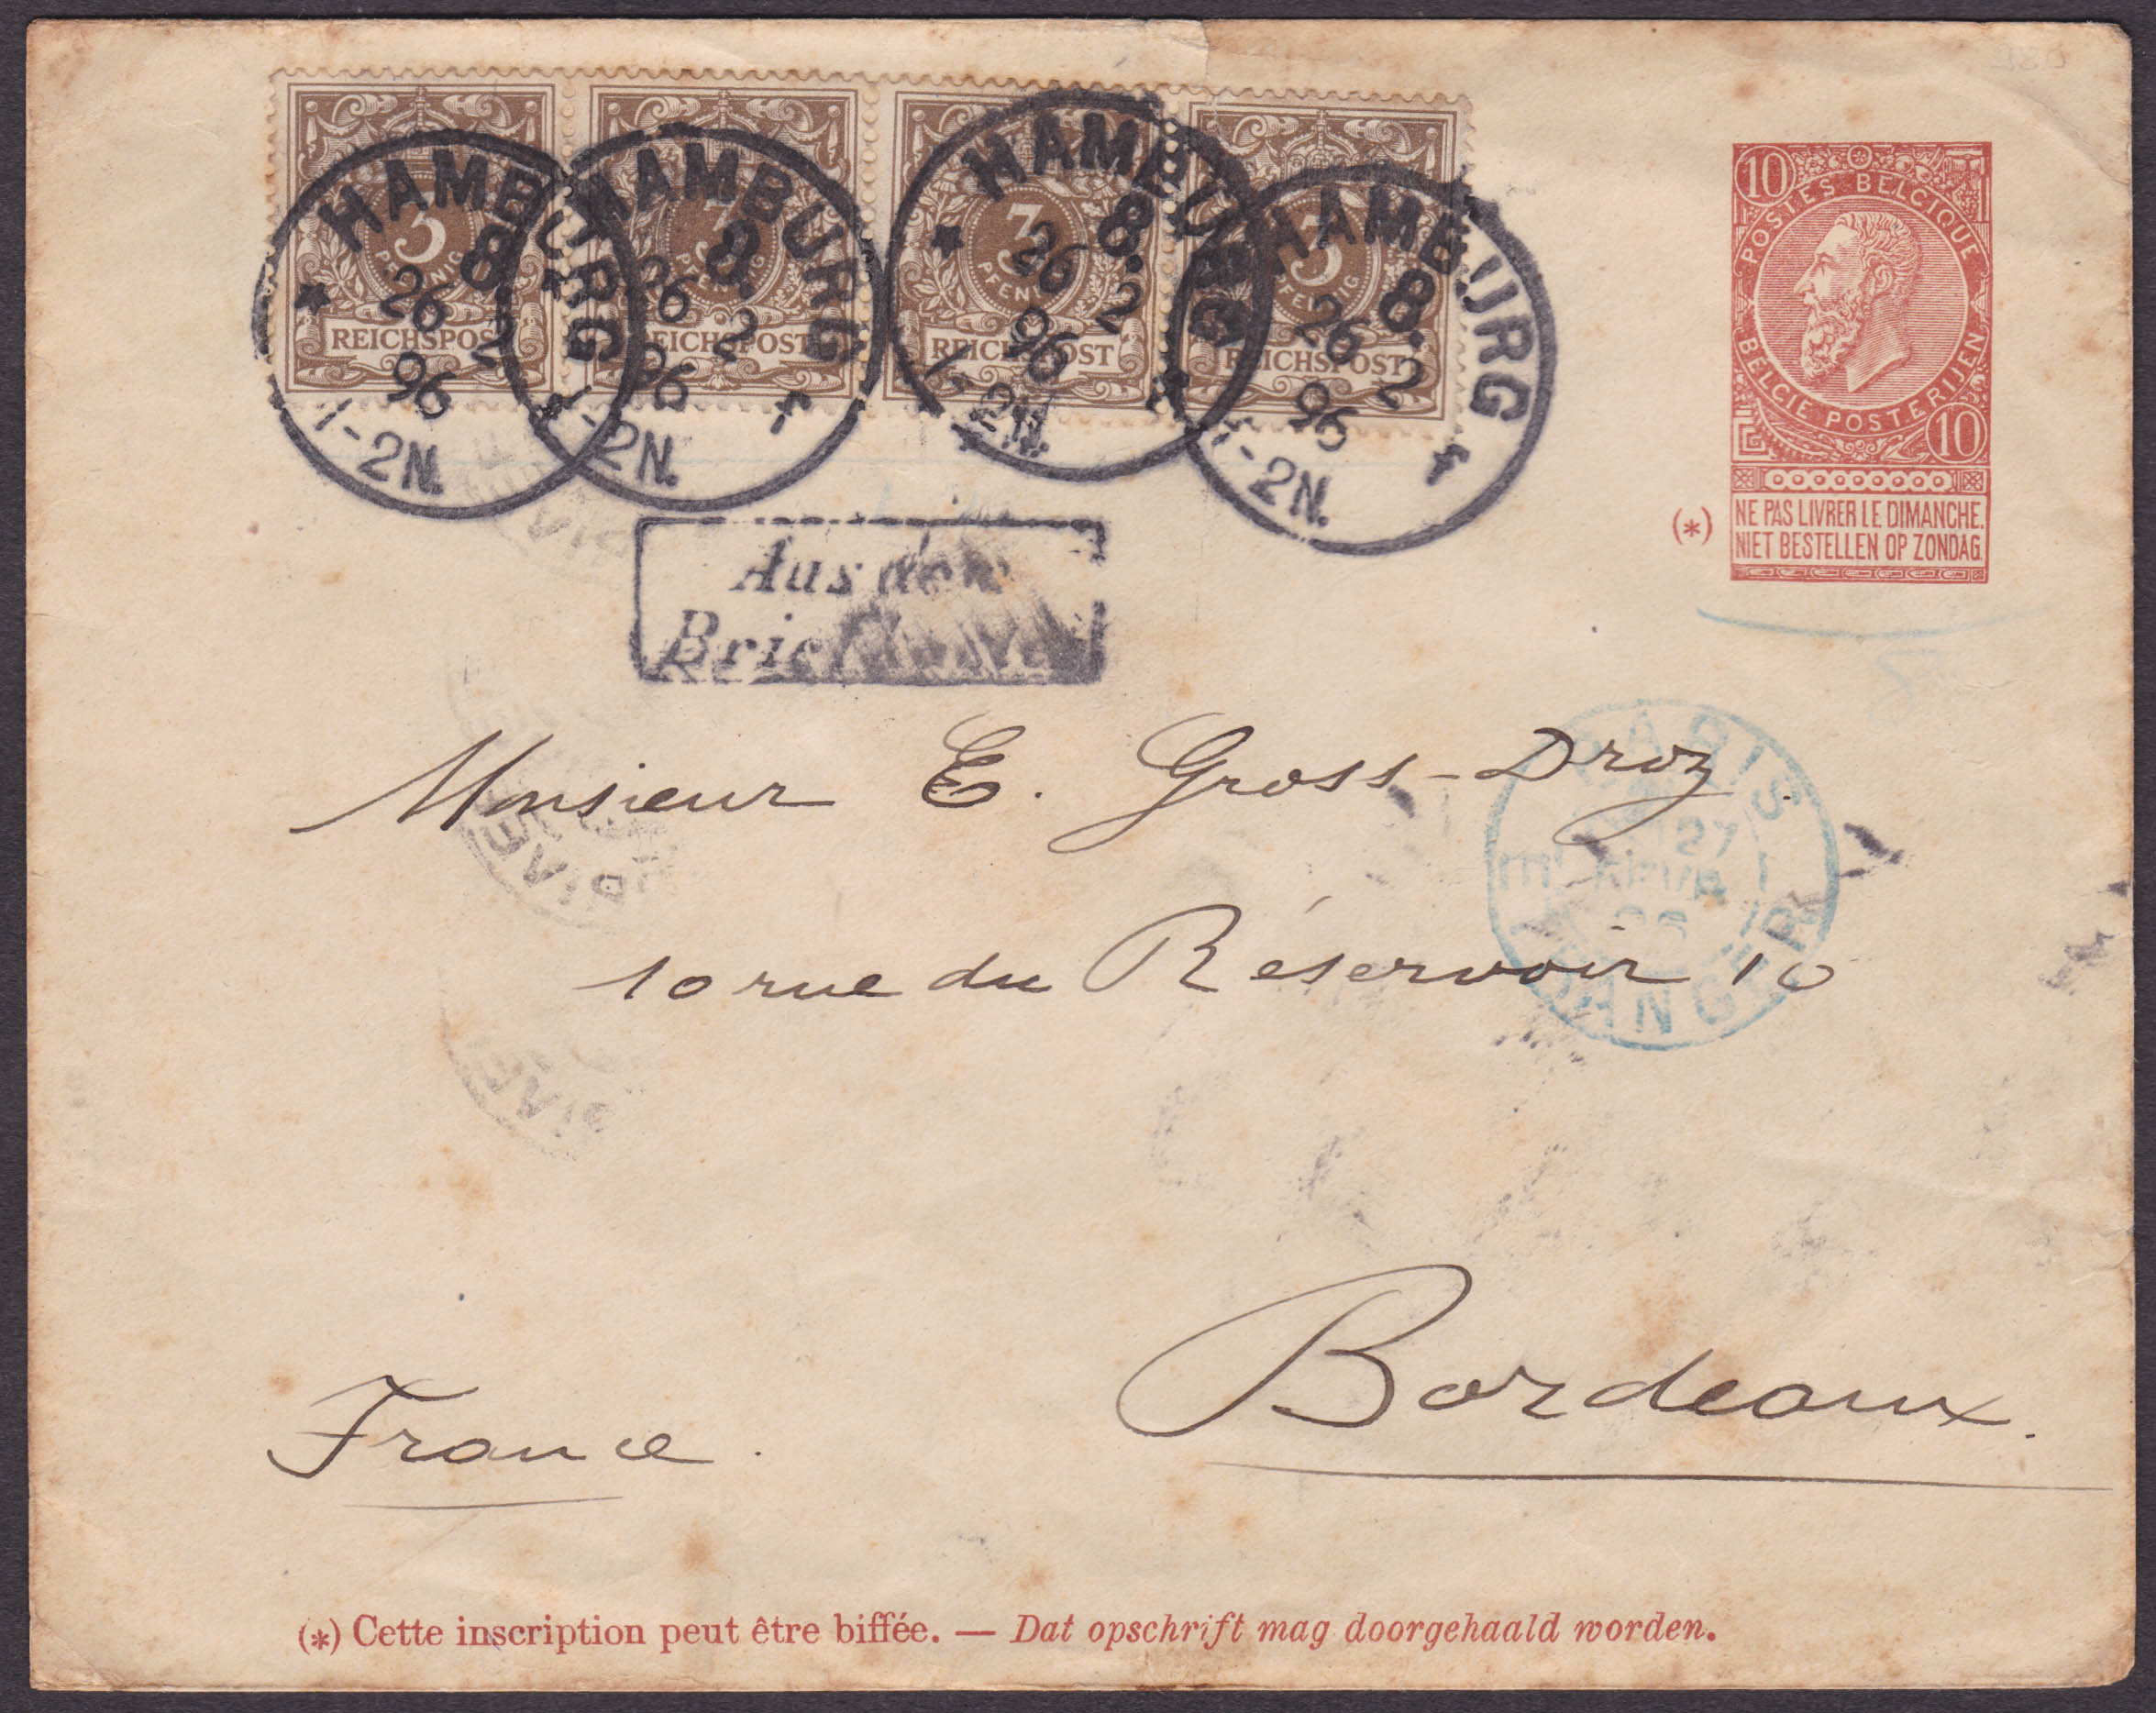 3 PFENNIG REICHSPOST
3 PFENNIG REICHSPOST
3 PFENNIG REICHSPOST
3 PFENNIG REICHSPOST
HAMBURG 8. 26 2 96 1-2N.
HAMBURG 8. 26 2 96 1-2N. f
HAMBURG 8. 26 2 96 1-2N.
HAMBURG 8. 26 2 96 1-2N. f
10
POSTES BELGIQUE
BELGIE POSTERIJEN
10
(*) NE PAS LIVRER LE DIMANCHE.
NIET BESTELLEN OP ZONDAG.
Aus dem
Brief
PARIS
27
FEVR
96
ETRANGER
Monsieur E. Gross-Droz.
10 rue du Réservoir 10
Bordeaux.
France.
(*) Cette inscription peut être biffée. — Dat opschrift mag doorgehaald worden.